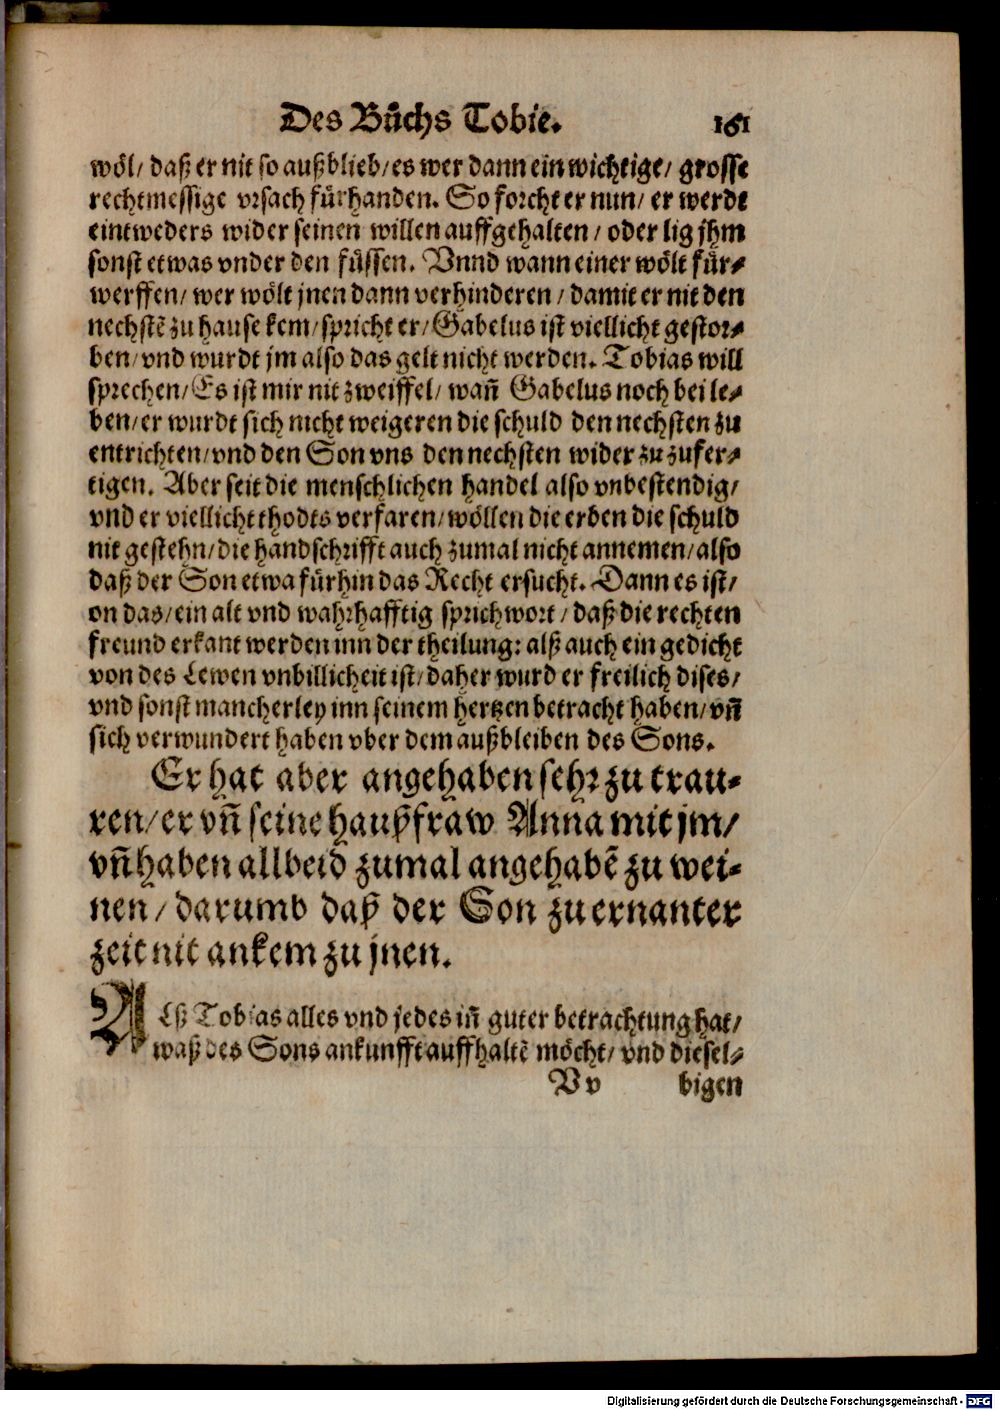 Des Bůchs Tobie. 161
wöl/ daß er nit so außblieb/ es wer dann ein wichtige/ grosse
rechtmessige vrsach fürhanden. So forcht er nun/ er werde
eintweders wider seinen willen auffgehalten / oder lig jhm
sonst etwas vnder den füssen. Vnnd wann einer wölt für⸗
werffen/ wer wölt jnen dann verhinderen / damit er nit den
nechstẽ zu hause kem/ spricht er/ Gabelus ist viellicht gestor⸗
ben/ vnd wurdt jm also das gelt nicht werden. Tobias will
sprechen/ Es ist mir nit zweiffel/ wañ Gabelus noch bei le⸗
ben/ er wurdt sich nicht weigeren die schuld den nechsten zu
entrichten/ vnd den Son vns den nechsten wider zu zufer⸗
tigen. Aber seit die menschlichen handel also vnbestendig/
vnd er viellicht thodts verfaren/ wöllen die erben die schuld
nit gestehn/ die handschrifft auch zumal nicht annemen/ also
daß der Son etwa fürhin das Recht ersucht. Dann es ist/
on das/ ein alt vnd wahrhafftig sprichwort / daß die rechten
freund erkant werden inn der theilung: alß auch ein gedicht
von des Lewen vnbillicheit ist/ daher wurd er freilich dises/
vnd sonst mancherley inn seinem hertzen betracht haben/ vñ
sich verwundert haben vber dem außbleiben des Sons.
Er hat aber angehaben sehr zu trau⸗
ren/ er vñ seine haußfraw Anna mit jm/
vñ haben allbeid zumal angehabẽ zu wei⸗
nen / darumb daß der Son zu ernanter
zeit nit ankem zu jnen.
ALß Tobias alles vnd jedes iñ guter betrachtung hat/
waß des Sons ankunfft auffhaltẽ möcht/ vnd diesel⸗
Vv bigen
Digitalisierung gefördert durch die Deutsche Forschungsgemeinschaft - DFG